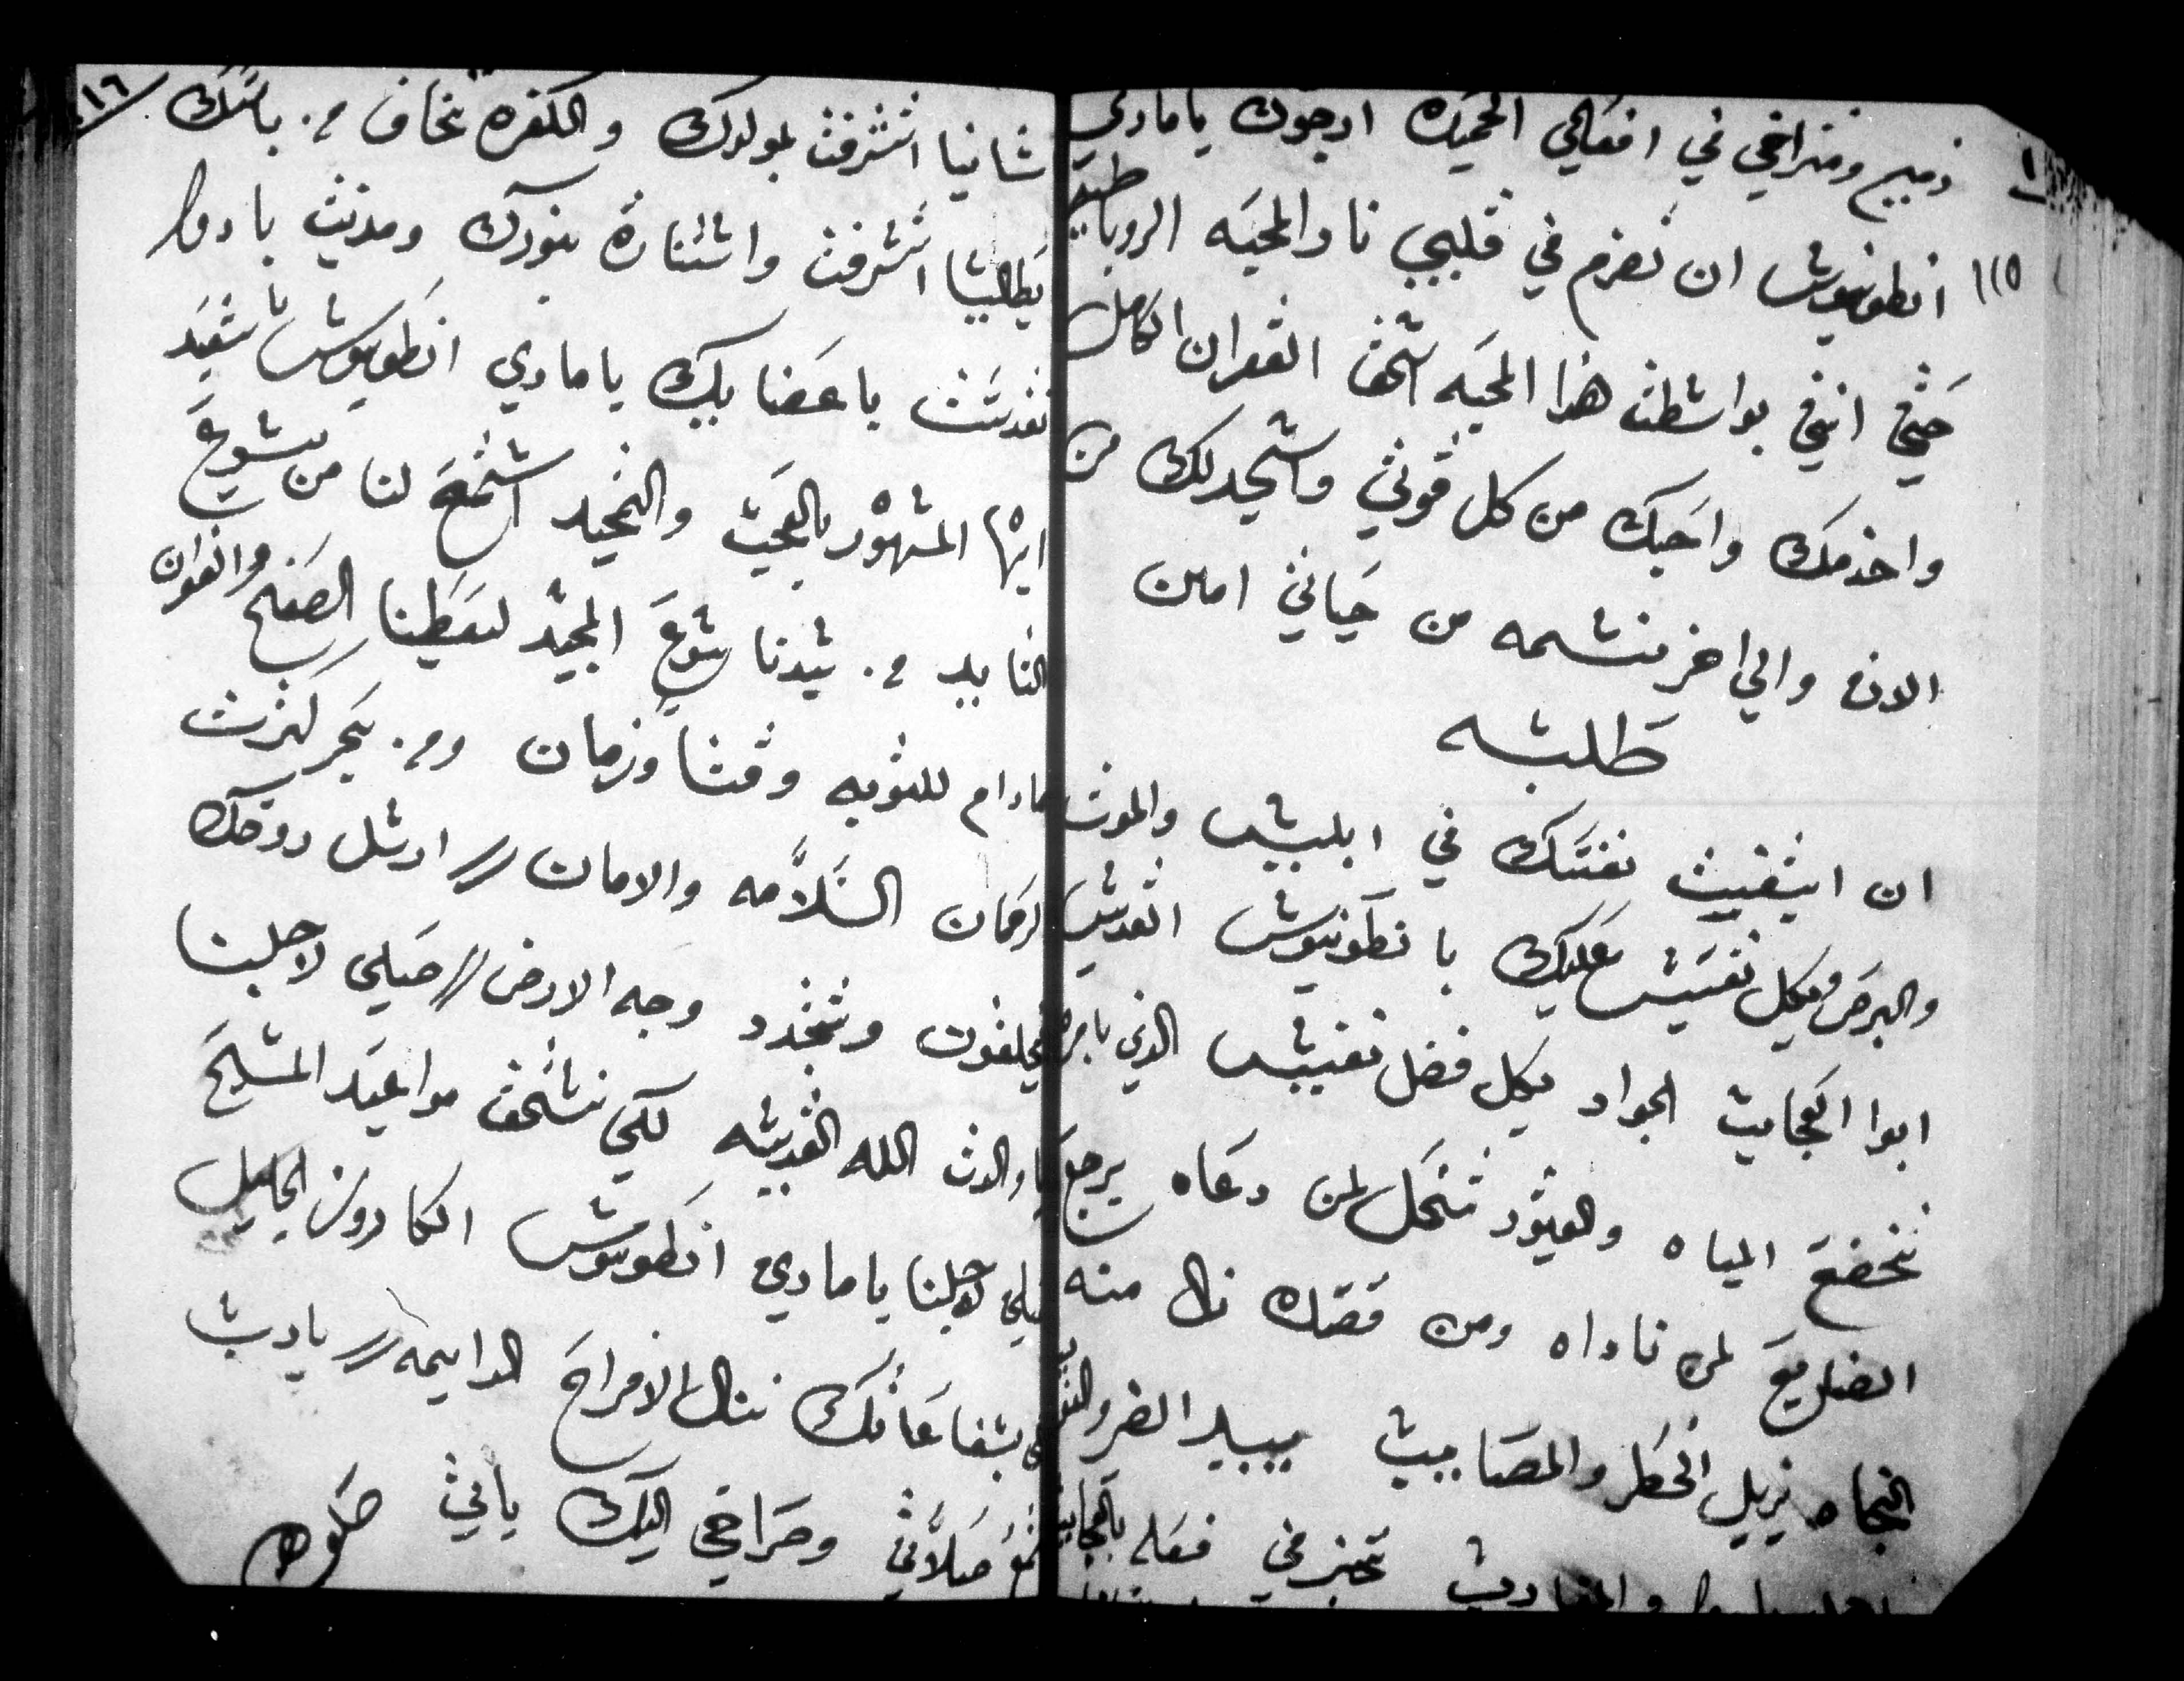 ذميم ومتراخي في افعالي الحميده ارجوك يامارى
١١٥ انطونيوش ان تضرم في قلبي نار المحبه الروبانيه
حتي انني بواشطت هذا المحبه اشتحق الغفران الكامل
واخدمك واحبك من كل قوتي واشجد لك من
الان والي اخر نشمه من حياتي امين
طلبه
ان ابتغيت نعمتك في ابليش والموت
والبرص وبكل تفتيش عليك يا نطونيوش القديش
ابوا العجايب الجواد بكل فضل نفيش الذي بامره
تخضع المياه والقيود تنحل لمن دعاه يرجع
الضايع لمن ناداه ومن قصده نال منه
النجاه يزيل الخطر والمصايب يبيد الضر والنوايب
تخبر في فعله بالعجايب
١١٦
شانيا اتشرفت بمولدك والكفره تخاف م. باشك
يطاليا اتشرفت واشتناره بنورك ومدينت بادوا
تقدشت باعضايك يامارى انطونيوش ياشعيد
ايها المشهور بالعجب والتمجيد اشمع لنا من يشوع
التاييد م. شيدنا يشوع المجيد ليعطينا الصفح والغفران
مادام للتوبه وقتا وزمان وم. بحر كنزت
لرحمان السلامه والامان // ارشل روحك
فيخلقون وتتجدد وجه الارض // صلي لاجلنا
يا والدت الله القديشه لكي نشتحق مواعيد المشيح
صلي لاجلنا يامارى انطونيوش الكاروز الجليل
لكي بشفاعاتك ننال الافراح الدايمه // يارب
اشتمع صلاتي وصراخي اليك ياتي صلوه